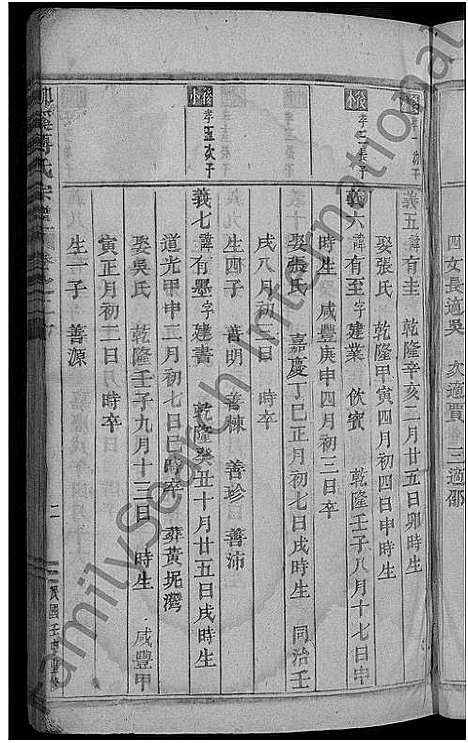 四女長適吳 次適賈 三適邵
義五諱有圭 乾隆辛亥二月廿五日卯時生
娶張氏 乾隆甲寅四月初四日申時生
後小
孝二長子
義六諱有至字建業 飲賓 乾隆壬子八月十七日申
時生 咸豐庚申四月初三日卒
娶張氏 嘉慶丁巳正月初七日戌時生 同治壬
戌八月初三日 時卒
生四子 善明 善棟 善珍 善沛
後小
孝五次子
義七諱有墨字建書 乾隆癸丑十月廿五日戌時生
道光甲申二月初七日巳時卒 葬黃坭灣
娶吳氏 乾隆壬子九月十三日 時生 咸豐甲
寅正月初二日 時卒
生一子 善源
氏宗譜
二
FamilySearch International